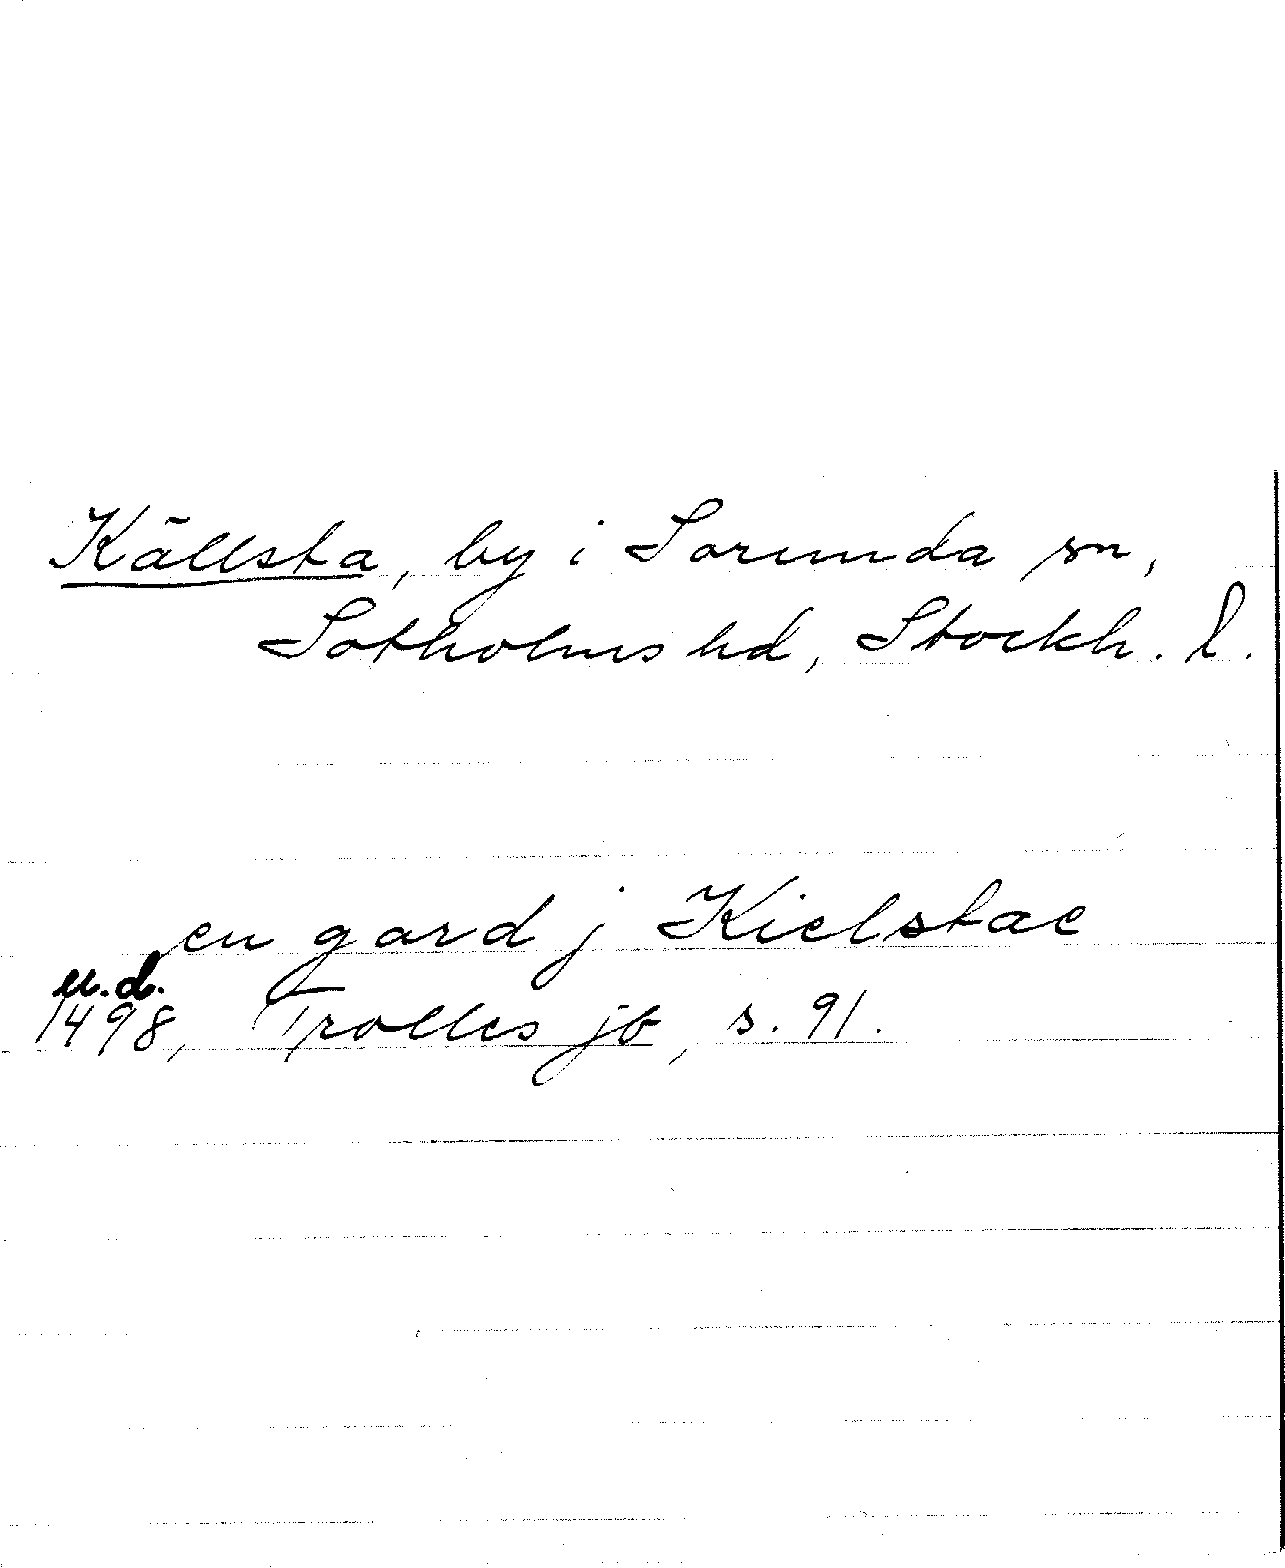 Källsta, by i Sorunda sn,
Sotholms hd, Stockh. l.
en gard j Kielstae
u.d.
1498, Trolles jb, s. 91.